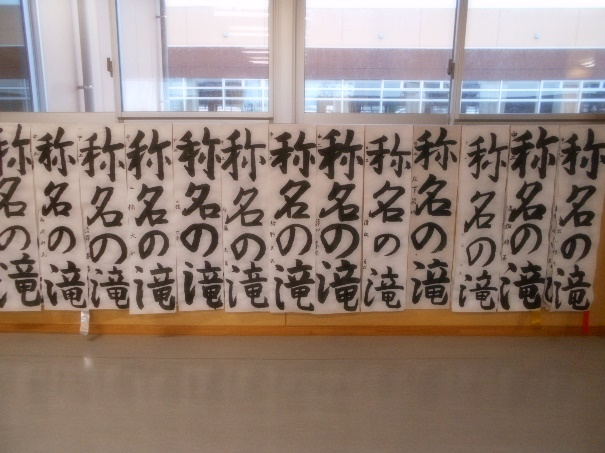 称名の滝
称名の滝
称名の滝
称名の滝
称名の滝
称名の滝
称名の滝
称名の滝
称名の滝
称名の滝
称名の滝
称名の滝
称名の滝